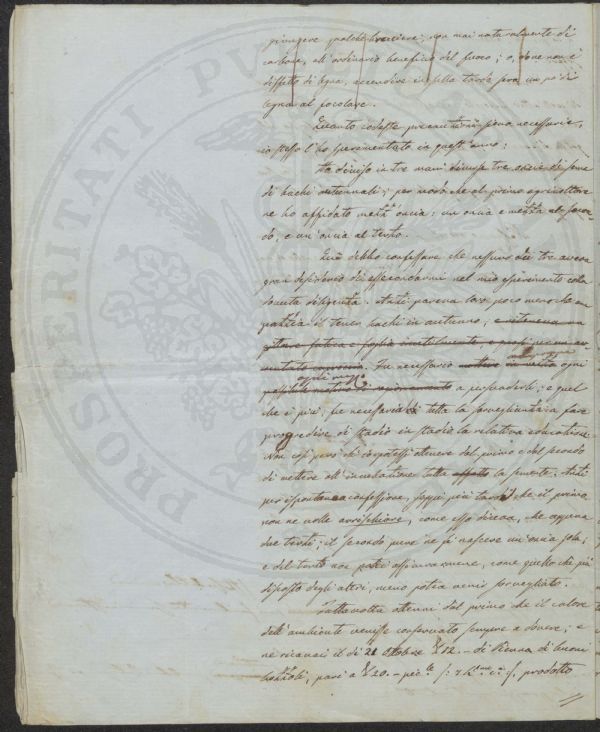 giungere qualche braciere, non mai naturalmente di
carbone, all'ordinario beneficio del fuoco; o, dove non è
diffetto di legna, accendere in sulla tarda sera un po' di
legna al focolare.
Quanto codeste precauzioni siano necessarie,
io stesso l'ho sperimentato in quest'anno:
Ho diviso in tre mani diverse tre oncie di seme
di bachi autunnali; per modo che al primo agricoltore
ne ho affidato mezz'oncia; un'oncia e mezza al secon-
do, e un'oncia al terzo.
Quì debbo confessare che nessuno dei tre aveva
gran desiderio di assecondarmi nel mio esperimento colla
dovuta diligenza. Anzi pareva loro poco meno che una
pazzia il tener bachi in autunno, e ritenevano
gettare fatica e foglia inutilmente, e quasi per un
Fu necessario mettere in ogni
ogni mezzo
possibile a persuaderli; e quel
che è più, fu necessaria tutta la sorveglianza a far
progredire di stadio in stadio la relativa educazione.
Non così però ch'io potessi ottenere dal primo e dal secondo
di mettere all'incubazione tutta affatto la semente. Anzi
per ispontanea confessione, seppi più tardi, che il primo
non ne volle arrischiare, come esso diceva, che appena
due terzi; il secondo pure ne fè nascere un'oncia sola;
e del terzo non potei assicurarmene, come quello che più
discosto dagli altri, meno potea venir sorvegliato.
Tuttavolta ottenni dal primo che il calore
dell'ambiente venisse conservato sempre a dovere; e
ne ricavai il dì 21 Ottobre 12.- di Vienna di buoni
bozzoli, pari a 20.- prodotto